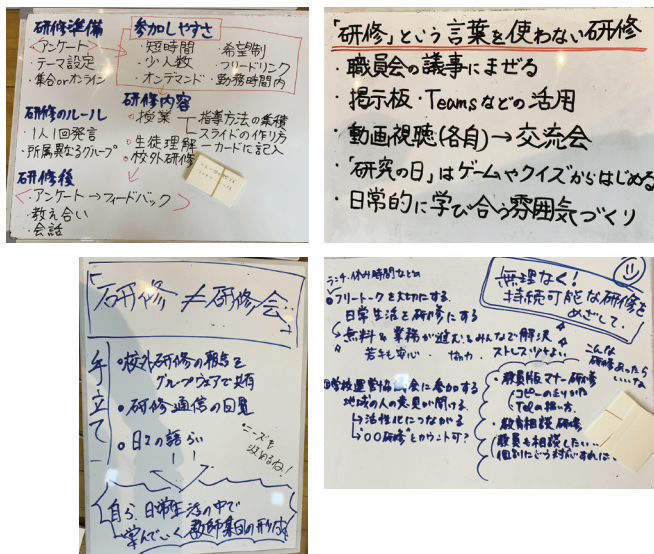 研修準備
・アンケート
・テーマ設定
・集合orオンライン
参加しやすさ
・短時間
・少人数
・オンデマンド
・希望制
・フリードリンク
・勤務時間内
研修のルール
・1人1回発言
・所属異なるグループ
研修内容
・授業
指導方法の蓄積
スライドの作り方
・生徒理解―カードに記入
・校外研修
研修後
・アンケート→フィードバック
・教え合い
・会話
「研修」という言葉を使わない研修
・職員会の議事にまぜる
・掲示板・Teamsなどの活用
・動画視聴(各自)→交流会
・「研究の日」はゲームやクイズからはじめる
・日常的に学び合う雰囲気づくり
「研修≠研修会」
手立て
・校外研修の報告を
グループウェアで共有
・研修通信の回覧
・日々の語らい
・ニーズを
汲めるね!
自ら、日常生活の中で
学んでいく教師集団の形成
ランチ・休み時間などの
フリートークを大切にする。
日常生活を研修にする
無料&業務が進む&みんなで解決
若手も安心・協力・ストレス少なし
無理なく!
持続可能な研修を
めざして。
こんな
研修あったら
いいな
学校運営協議会に参加する
地域の人の意見が聞ける。
→活性化につながる
→〇〇研修"とカウント可?
・教員版マナー研修
コピーのとりかた
Telの扱い方.
・教育相談研修
職員も相談したい…
個別にどう対応すれば。